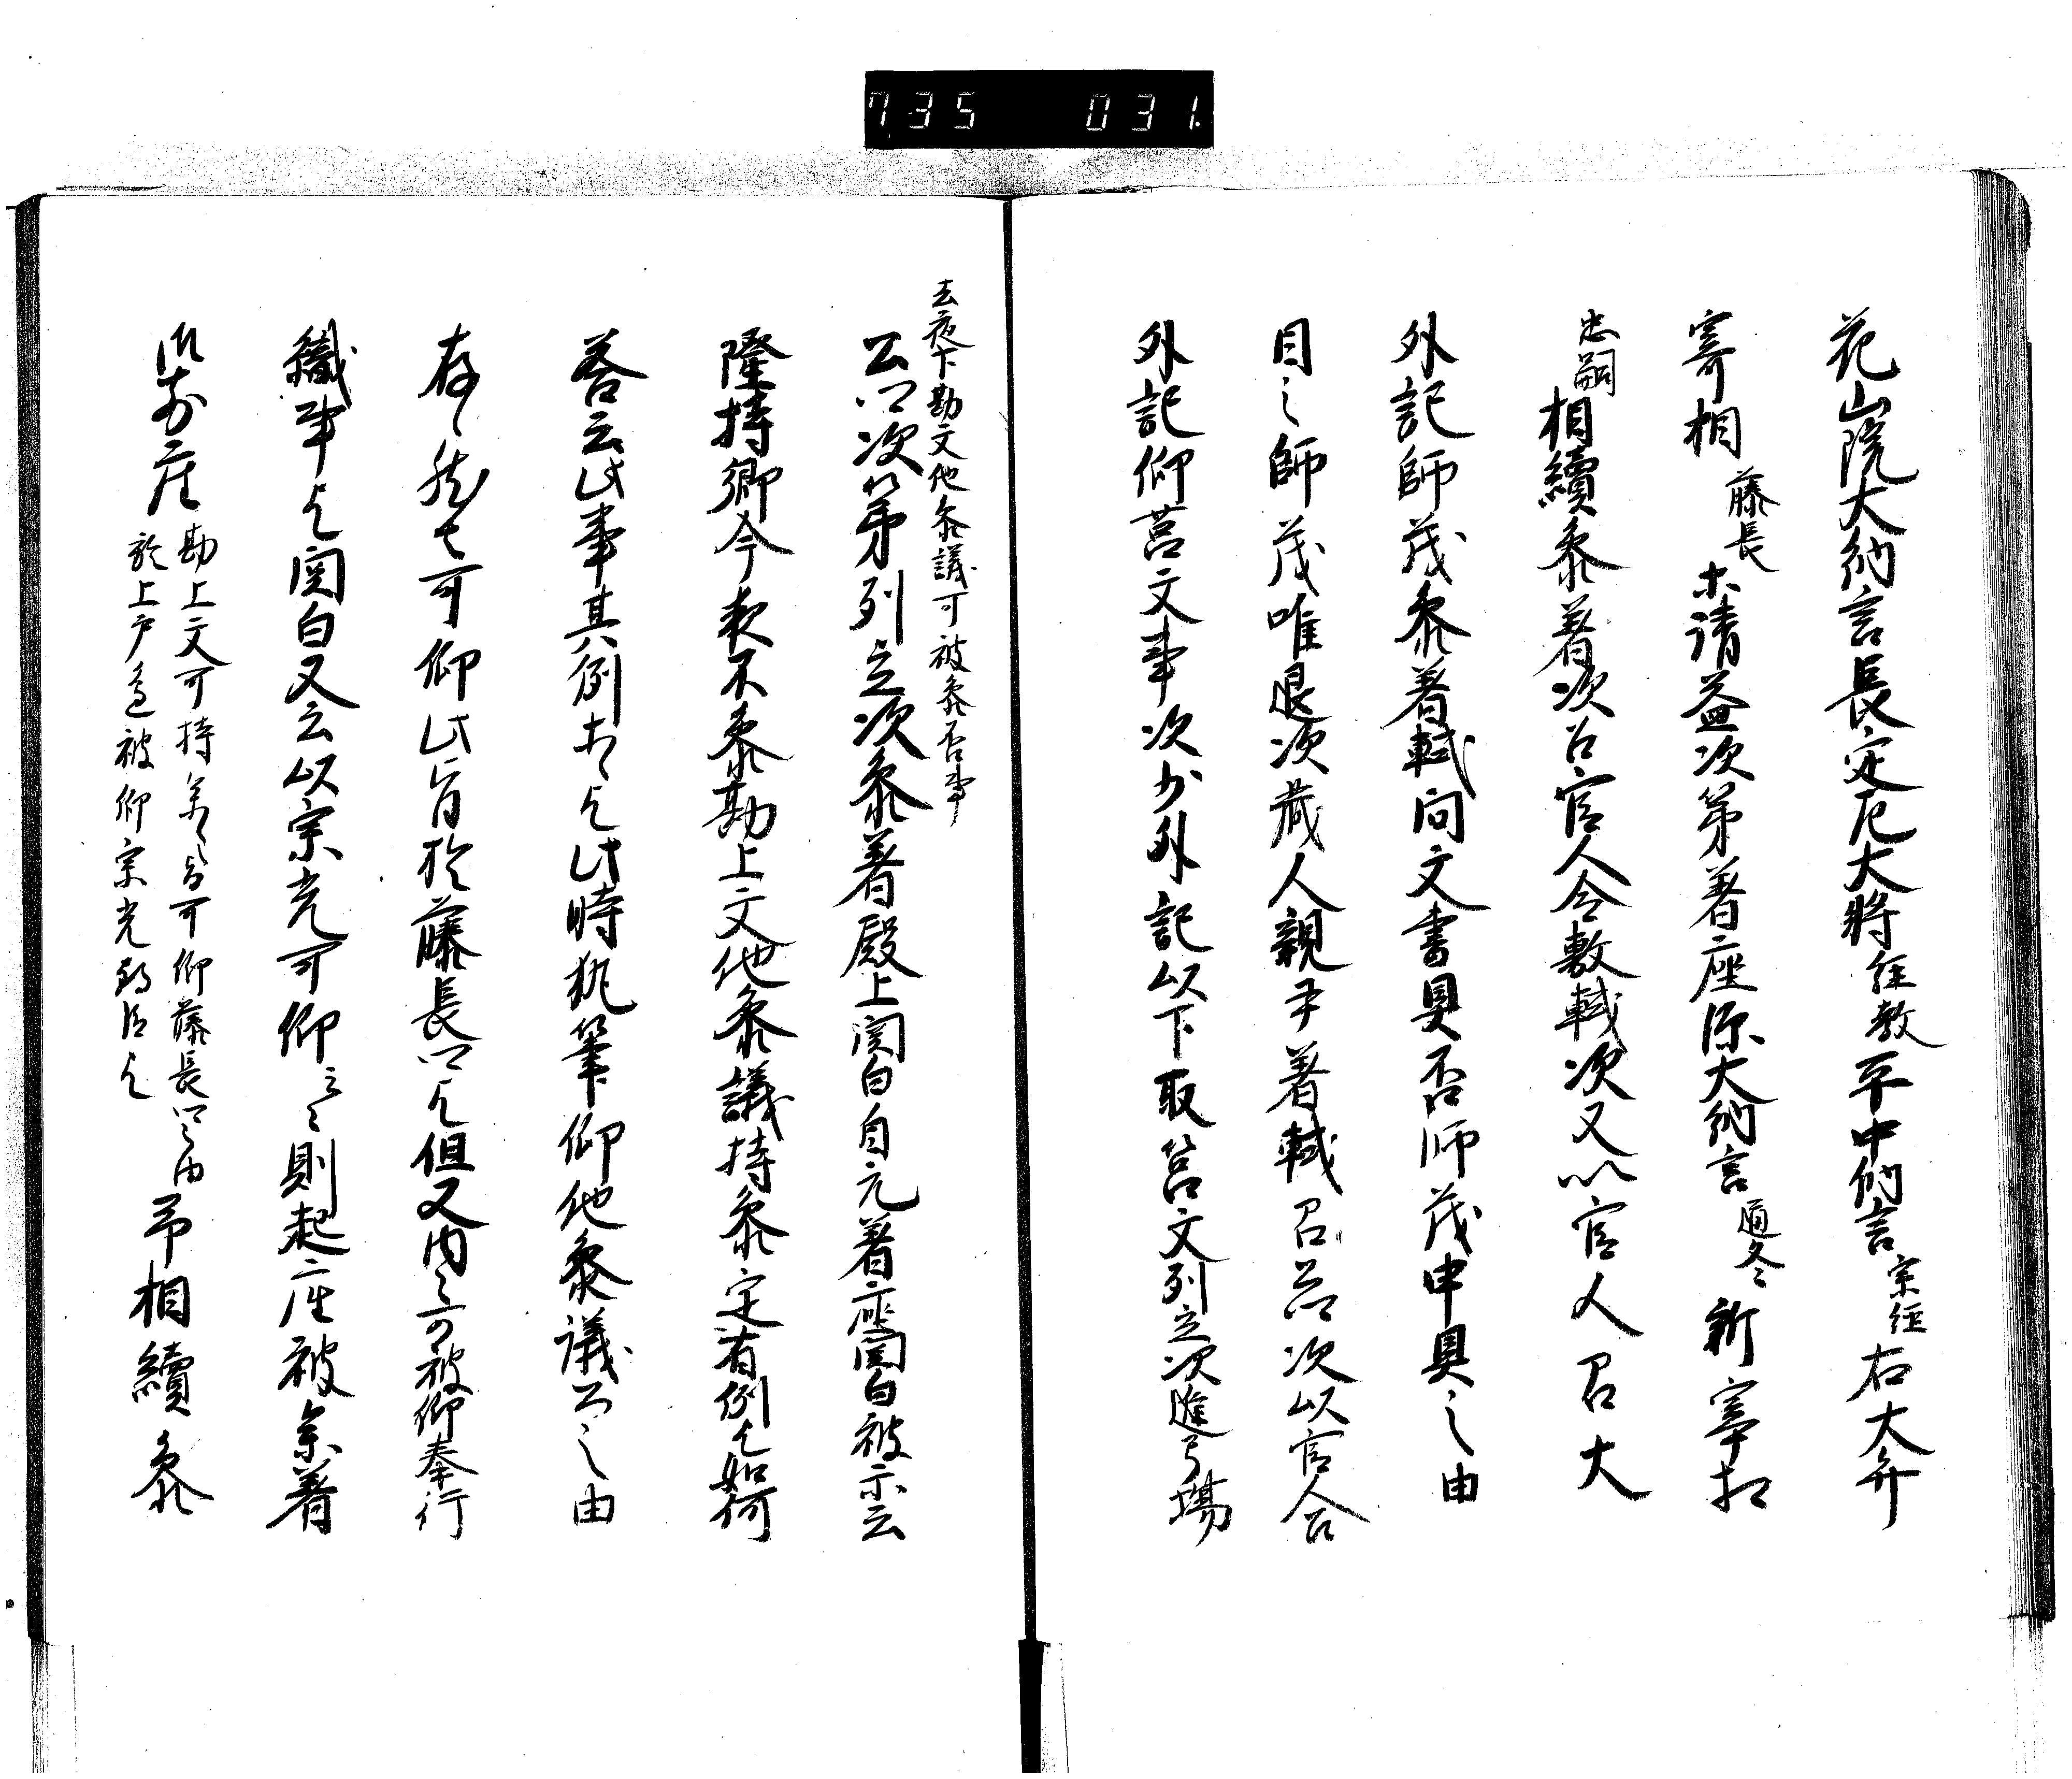 735 031
花山院大納言長定左大将経教平中納言宗経右大弁
宰相藤長示請益次第着座源大納言通冬新宰相
忠嗣相續参着次召官人令敷軾次又以官人召大
外記師茂参着軾向文書具否師茂申具之由
目之師茂唯退次蔵人親尹着軾召次以官人召
外記仰莒文事次少外記以下取莒文列立次進弓場
去夜下勘文他参議可被参否事
公卿次第列立次参着殿上関白自元着座関白被示云
隆持卿今夜不参勘上文他参議持参定有例欤如何
答云此事其例有之欤此時執筆仰他参議之由
存之然者可仰此旨於藤長卿欤但又内々可被仰奉行
職事欤関白又云以宗光可仰云々則起座被参着
御前座
勘上文可持参之旨可仰藤長卿之由
於上戸邊被仰宗光朝臣欤
予相續参